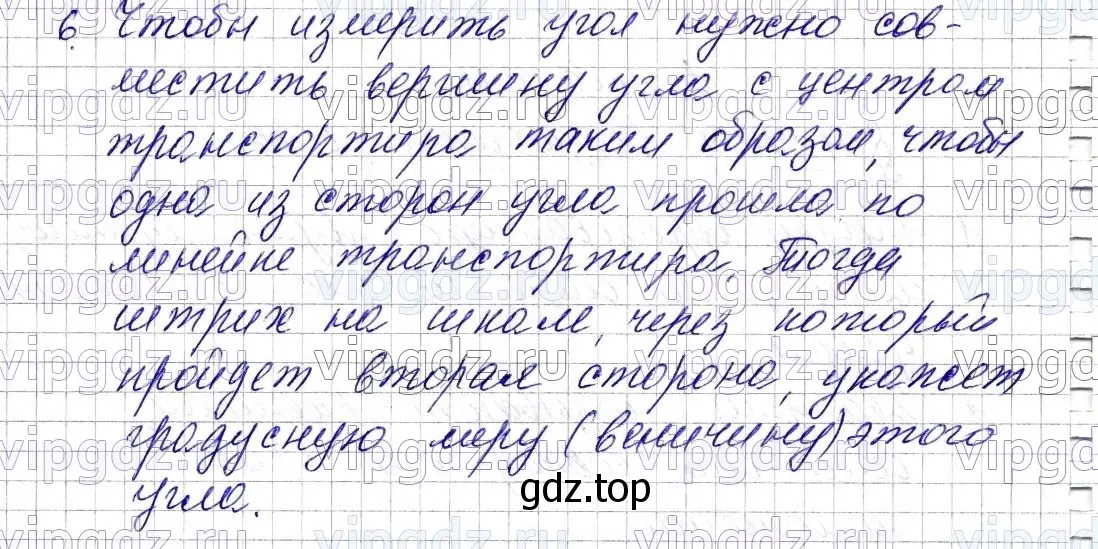 6. Чтобы измерить угол нужно сов-
местить вершину угла с центром
транспортира таким образом, чтобы
одна из сторон угла прошла по
линейке транспортира. Тогда
штрих на шкале, через который
пройдет вторая сторона, укажет
градусную меру (величину) этого
угла.
gdz.top